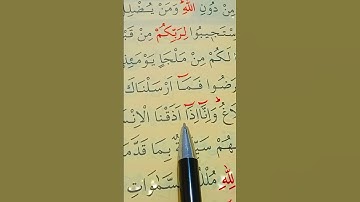 مِنْ دُونِ اللّٰهِ وَمَنْ يُضْلِلِ
سْتَجٖيبُوا لِرَبِّكُمْ مِنْ قَبْ
لَكُمْ مِنْ مَلْجَأٍ يَوْمَئِذٍ
رَضُوا فَمَٓا اَرْسَلْنَاكَ
غُ وَاِنَّٓا اِذَٓا اَذَقْنَا الْاِنْسَ
هُمْ سَيِّئَةٌ بِمَا قَدَّمَ
لِلّٰهِ مُلْكُ السَّمٰوَاتِ